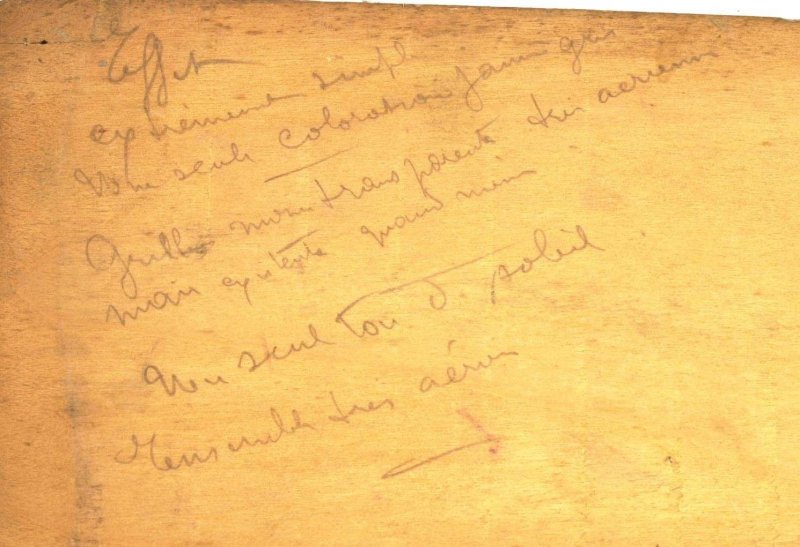 Effet
extrêmement simple
Une seule coloration jaune gris
Grille transparente très aérienne
mais existante quand même
Un seul ton de soleil
L'ensemble très aérien